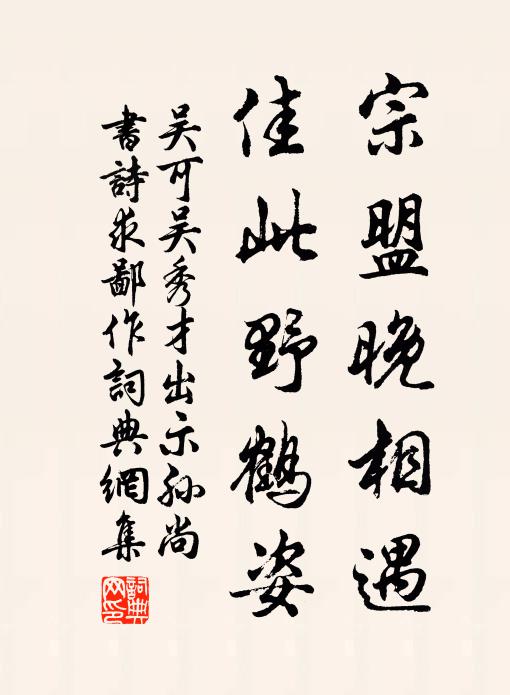 宗盟晚相遇
佳此野鶴姿
吴可吴秀才出示孙尚
書詩求鄙作詞典網集
詞典网印